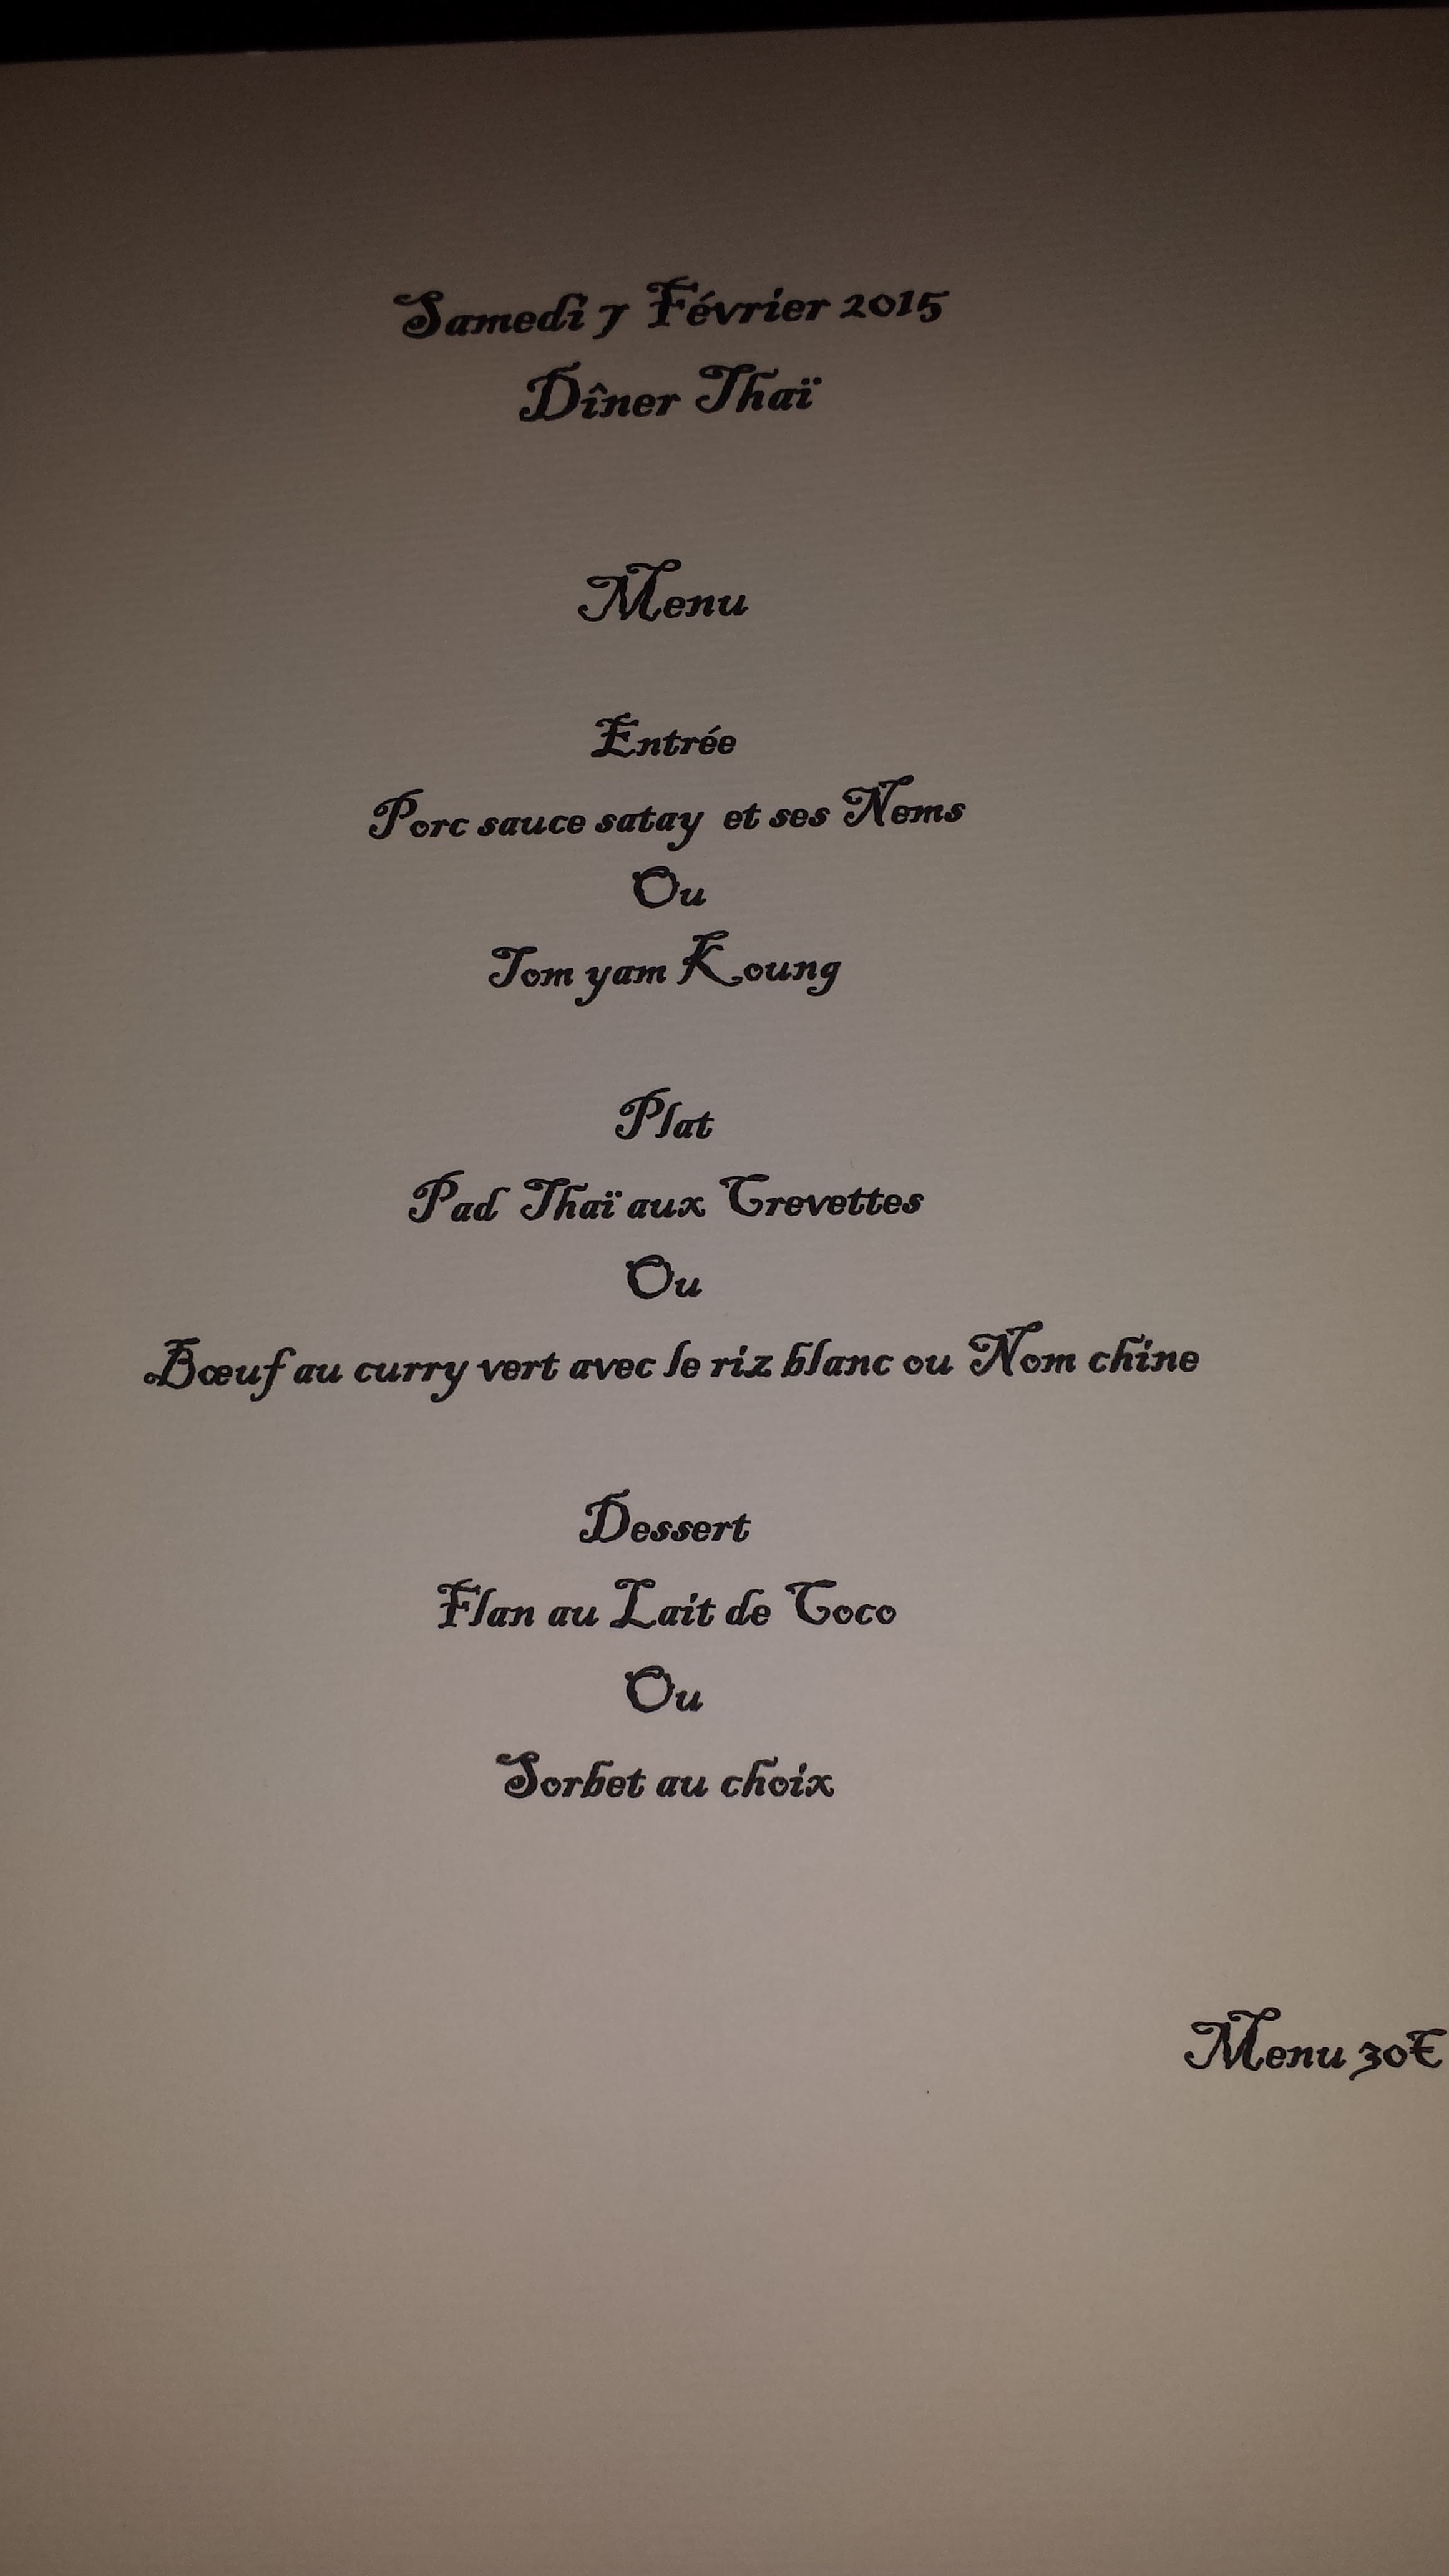 Samedi 7 Février 2015
Dîner Thaï
Menu
Entrée
Porc sauce satay et ses Nems
Ou
Tom yam Koung
Plat
Pad Thaï aux Crevettes
Ou
Bœuf au curry vert avec le riz blanc ou Nom chine
Dessert
Flan au Lait de Coco
Ou
Sorbet au choix
Menu 30€